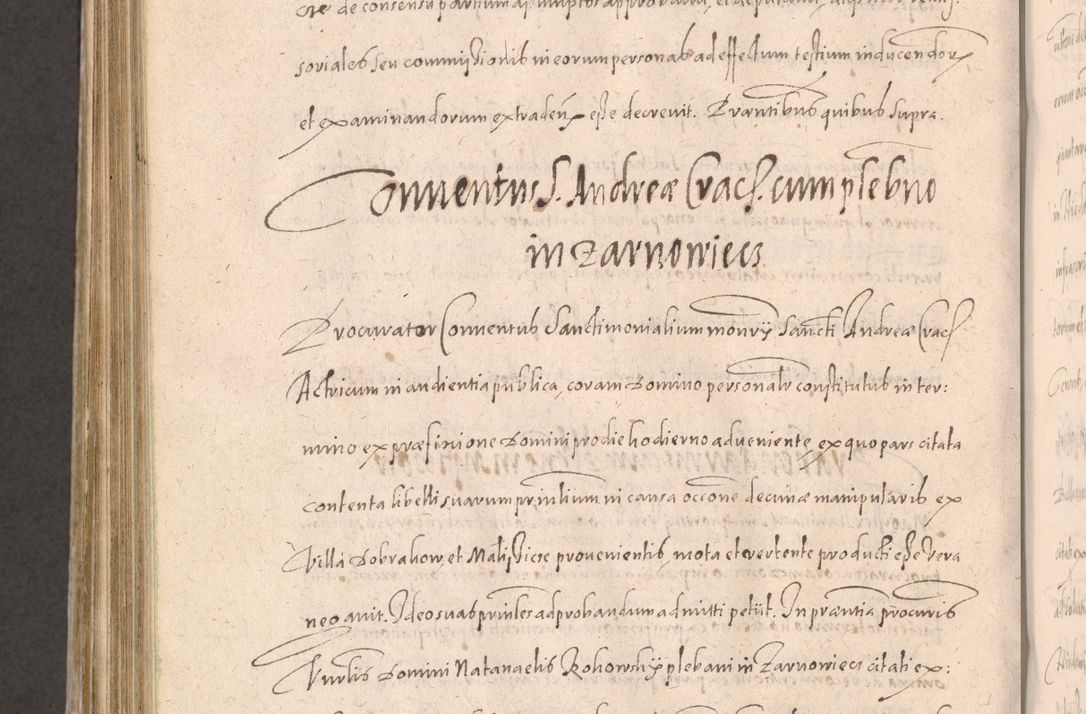 cre de consensu partium
soriales seu commissionib in eorum personab ad effectum testium inducendor
et examinandorum extraden esse decrevit. Præntibus quibus supra.
Conventus S. Andreæ Crac. cum plebno
in Zarnowiecz
Procurator Conventub Sanctimonialium monrÿ Sancti Andreæ Crac
Actricum in audientia publica, coram Domino personalr constitutub in ter:
mino ex præfinione Domini pro die hodierno adveniente, ex quo pars citata
contenta libelli suarum priulium in causa occone decimæ manipularib ex
Villa Dobrakow, et Malissicze provenientib, mota et vertente producti esse vera
negavit. Ideo suas priules ad probandum admitti petiit. In præntia procuris
Nurlis Domini Natanaelis Rohowskÿ plebani in Zarnowiecz citati ex: